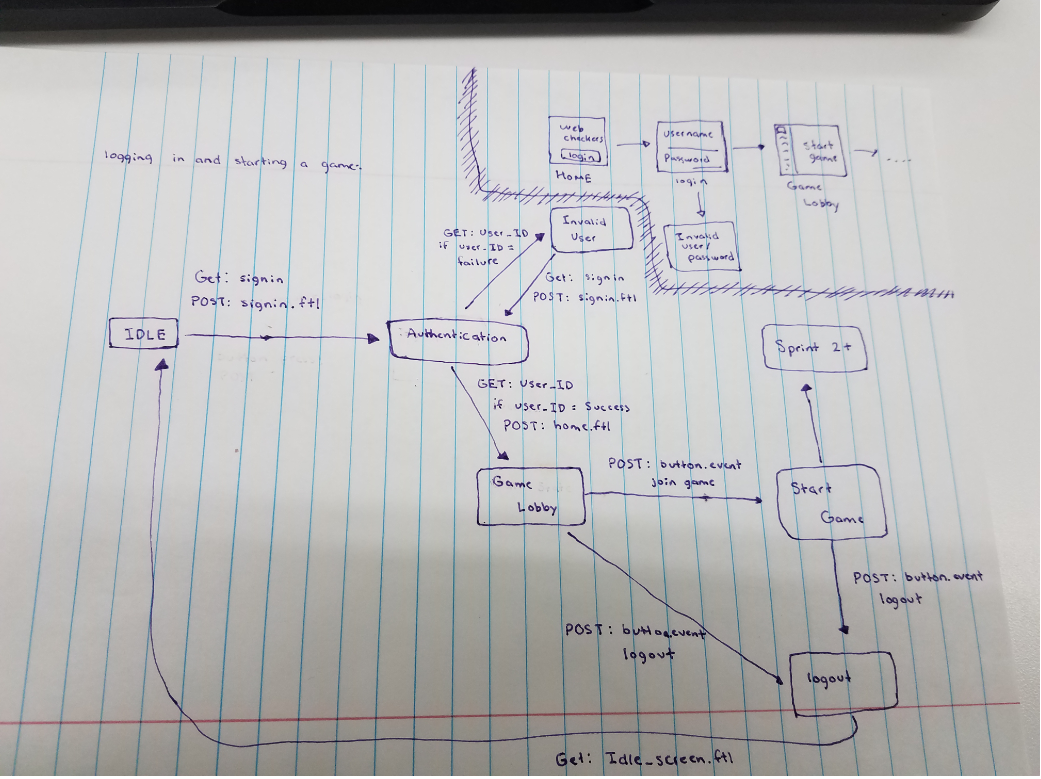 logging in and starting a game.
Web
checkers
login
HOME
Username
Password
login
Start
game
Game
Lobby
....
Invalid
user/
password
Invalid
User
GET: User_ID
if user_ID =
failure
Get: signin
POST: signin.ftl
Get: signin
POST: signin.ftl
IDLE
Authentication
Sprint 2+
GET: User_ID
if user_ID = Success
POST: home.ftl
Game
Lobby
POST: button.event
join game
Start
Game
POST: button.event
logout
POST: button.event
logout
logout
Get: Idle_screen.ftl